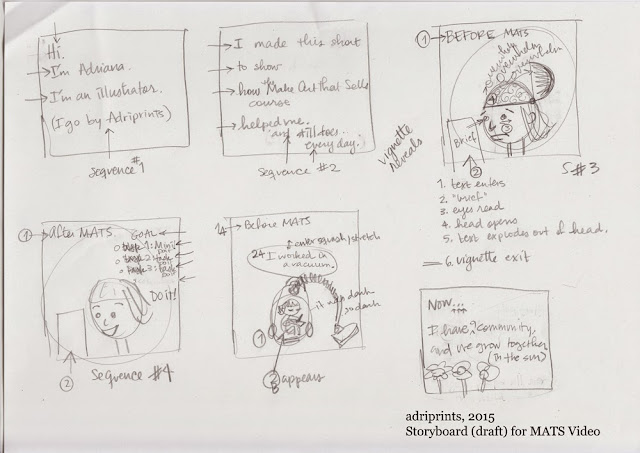 Hi.
I'm Adriana.
I'm an illustrator.
(I go by Adriprints)
sequence #1
I made this short
to show
how the Make Art that Sells
course
helped me.
and still does
every day.
sequence #2
vignette
reveals
1 BEFORE MATS
overwhelm
Brief
2
S#3
1. text enters
2. "brief"
3. eyes read
4. head opens
5. text explodes out of head.
6. vignette exit
1 after MATS
GOAL
Mini
2
3
Do it!
2
Sequence #4
Before MATS
enter squash/stretch
I worked in
a vacuum.
it was dark
so dark
1
appears
Now...
I have a community,
and we grow together
(in the sun)
adriprints, 2015
Storyboard (draft) for MATS Video